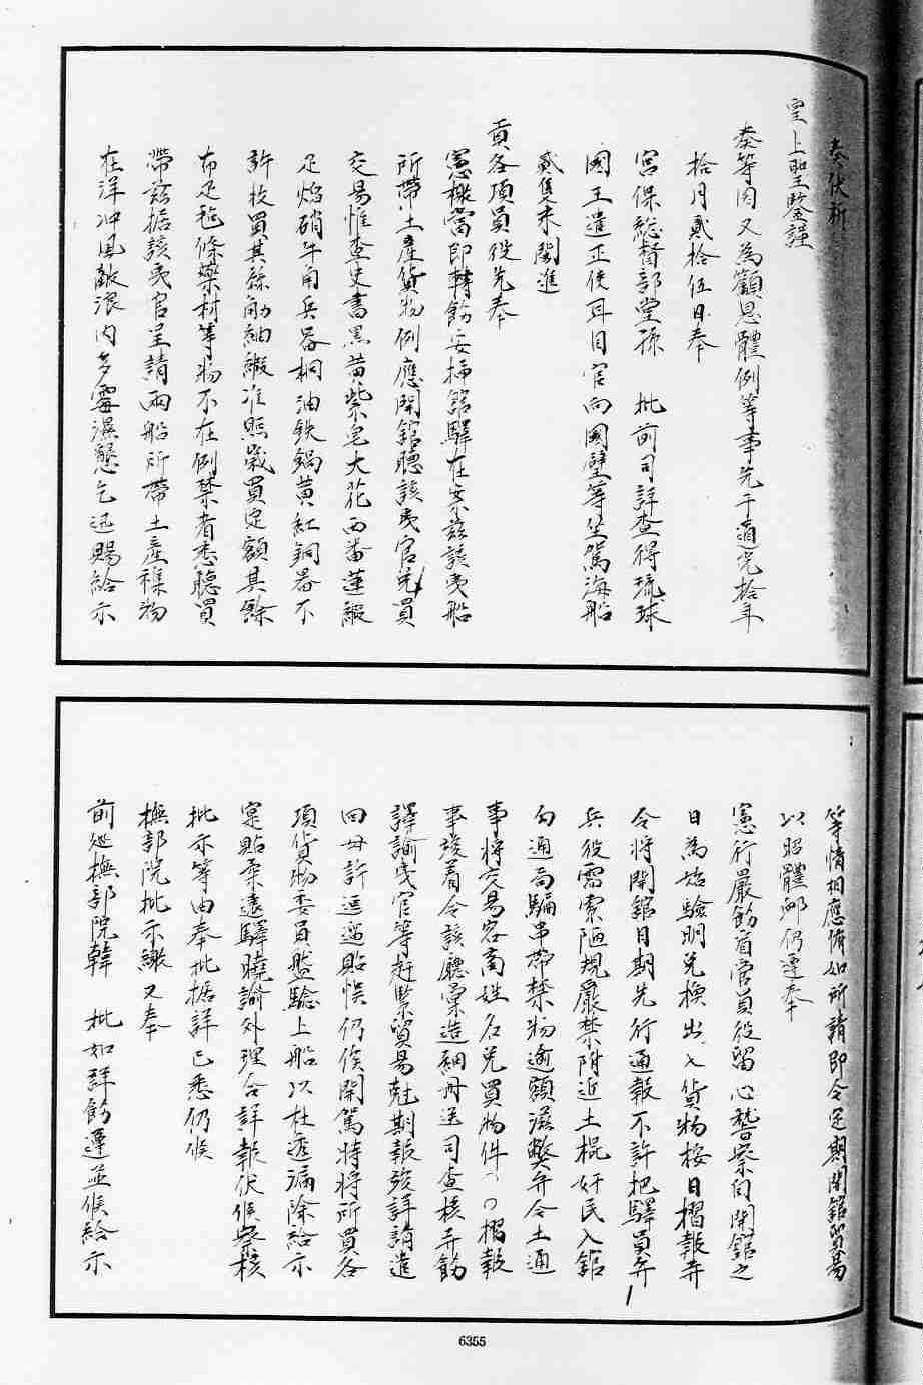 奏伏祈
皇上聖鑒謹
奏等因又為籲恩體例等事先于道光拾年
拾月貳拾伍日奉
宮保總督部堂孫 批前司詳查得琉球
國王遣正使耳目官向國璧等坐駕海船
貳隻來閩進
貢各項員役先奉
憲檄當即轉飭安插館驛在案茲該夷船
所帶土產貨物例應開館聽該夷官兌買
交易惟查史書黑黃紫皂大花西番蓮緞
疋焰硝牛角兵器桐油鉄鍋黃紅銅器不
許收買其絲觔紬緞准照歲買定額其餘
布疋毡條藥材等物不在例禁者悉聽買
帶茲据該夷官呈請兩船所帶土產襍物
在洋冲風敵浪內多霉濕懇乞迅賜給示
等情相應俻如所請即令定期開館貿易
以昭體卹仍遵奉
憲行嚴飭首官員役留心稽察自開館之
日為始驗明兌換出入貨物按日摺報并
令將開館日期先行通報不許把驛員弁
兵役需索陋規嚴禁附近土棍奸民入館
勾通局騙串帶禁物逾額滋弊并令土通
事將交易客商姓名兌買物件 摺報
事竣着令該廳彙造細冊送司查核并飭
譯諭夷官等趕緊貿易尅期報竣詳請遣
回毋許逗遛貽悞仍俟開駕時將所買各
項貨物委員盤驗上船以杜透漏除給示
寔貼柔遠驛曉諭外理合詳報伏候察核
批示等由奉批据詳已悉仍候
撫部院批示繳又奉
前廵撫部院韓 批如詳飭遵並候給示
6355